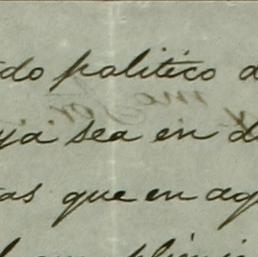 do politico a
ya sea en d
as que en ag